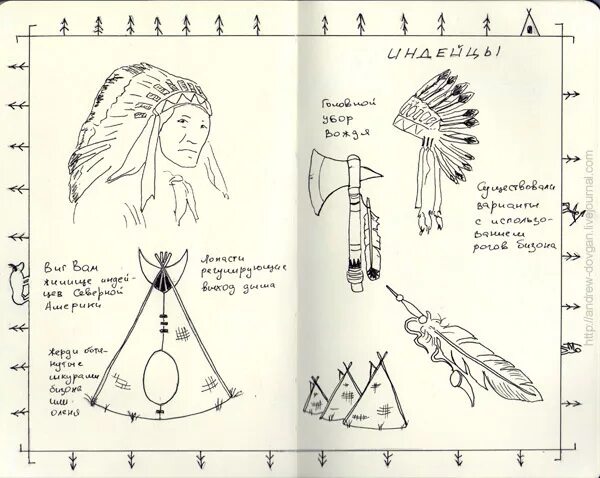 ИНДЕЙЦЫ
Головной
убор
вождя
Существовали
варианты
с использо-
ванием
рогов бизона
Лопасти
регулирующие
выход дыма
Виг Вам
жилище индей-
цев Северной
Америки
жерди обтя-
нутые
шкурами
бизона
или
оленя
http://andrew-dovgan.livejournal.com